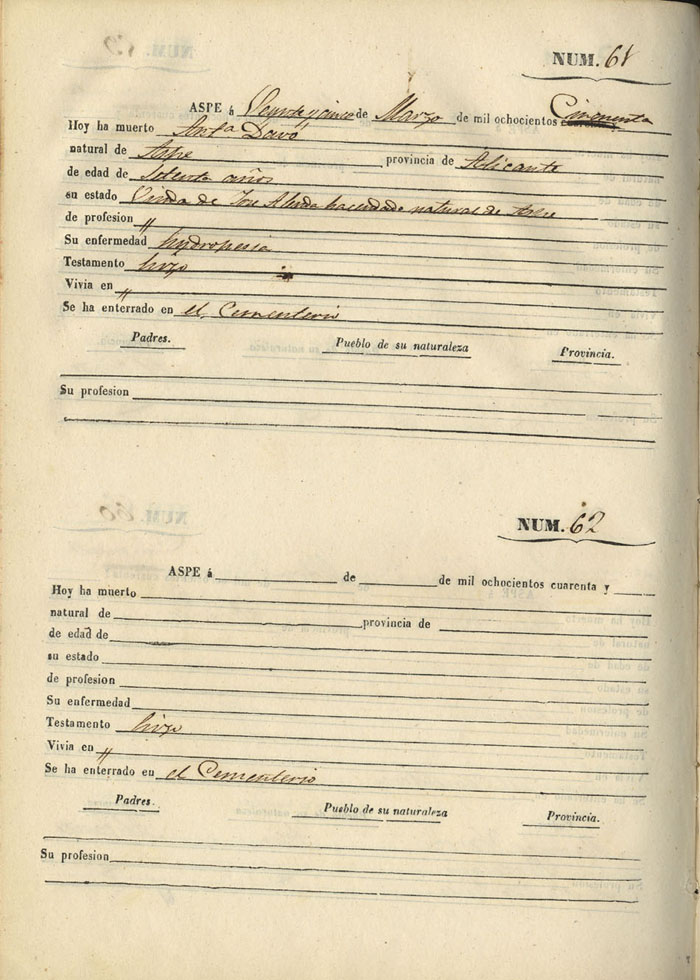 NUM. 61
ASPE á Veynte y cinco de Marzo de mil ochocientos Cincuenta
Hoy ha muerto Ant.ª Davó
natural de Aspe provincia de Alicante
de edad de años
su estado Viuda de Jose hacendado natural de Aspe
de profesion "
Su enfermedad hydropesia
Testamento hizo
Vivia en "
Se ha enterrado en el Cementerio
Padres. Pueblo de su naturaleza Provincia.
Su profesion
NUM. 62
ASPE á de de mil ochocientos cuarenta y
Hoy ha muerto
natural de provincia de
de edad de
su estado
de profesion
Su enfermedad
Testamento hizo
Vivia en "
Se ha enterrado en el Cementerio
Padres. Pueblo de su naturaleza Provincia.
Su profesion